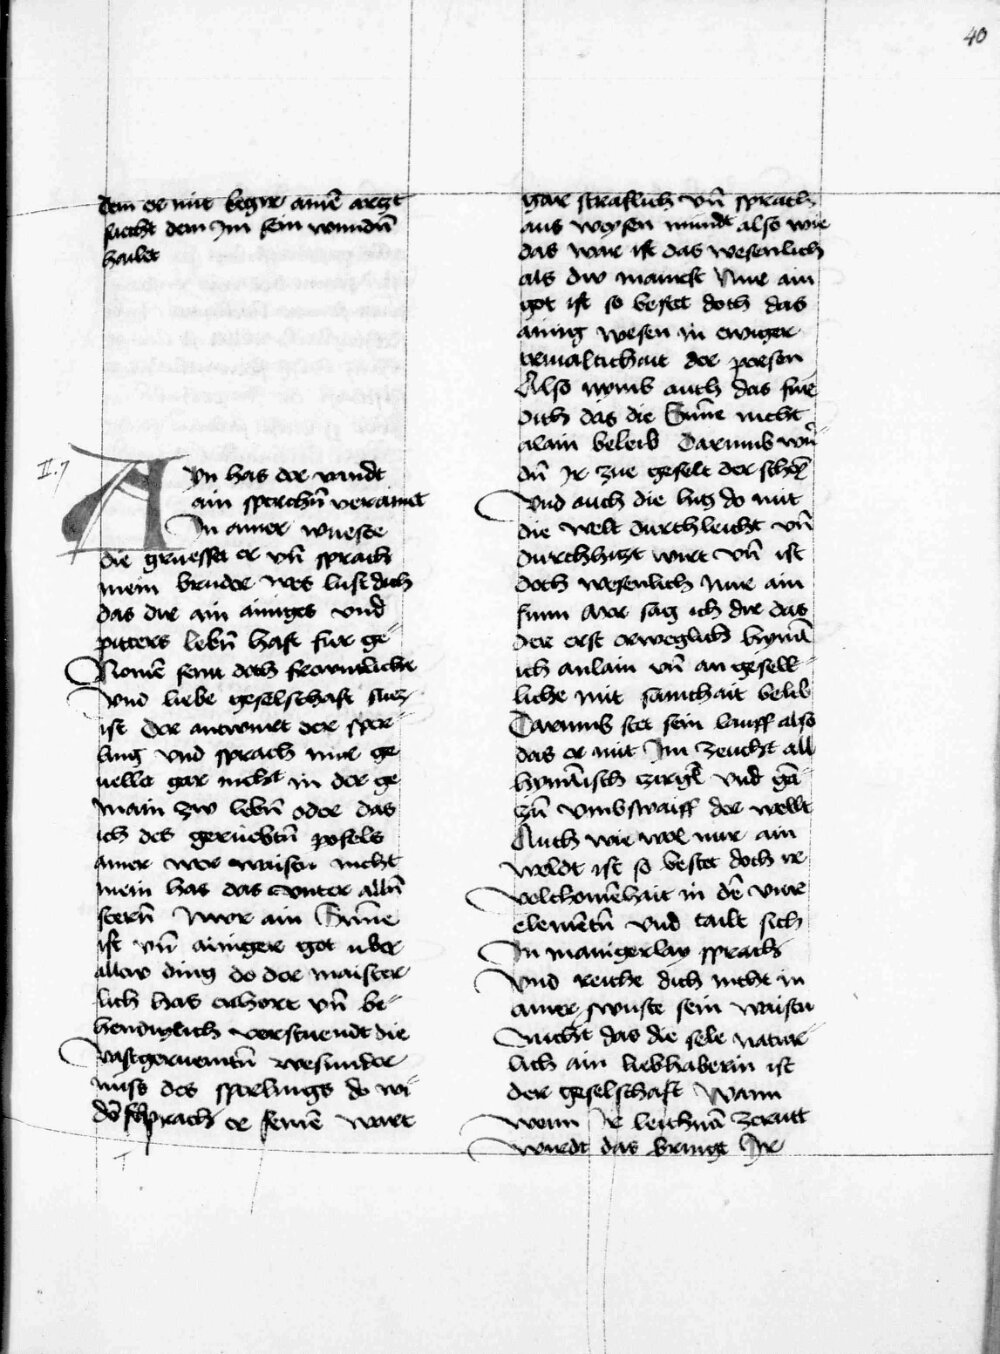 40
dem er mit begir ainē arczt
suecht dem Im sein wundñ
hailet
II.7
Ayn has der vandt
ain sperchñ verainet
In ainer wueste
die gruesset er vñ sprach
mein bruder wes lust dich
das dir ain ainiges und
pitters lebñ hast fur ge-
Nomē seint doch frewntliche
vnd liebe geselschaft suez
ist Der antwurt der sper-
ling vnd sprach mir ge
uellet gar nicht in der ge
main zw lebñ oder das
ich des gerüebtñ pofels
ainer wer waistu nicht
mein has das vnter allñ
sterñ Nwr ain Sūne
ist vñ ainiger got uber
allew ding do der maister
lich has erhort vñ be-
hendiglich verstuendt die
vastgeruemtñ wesunder
nuss des sperlings do wi-
dē sprach er seinē wart
gar straflich vñ sprach
aus weysen mundt also wie
das war ist das wesenlich
als dw mainest Nur ain
got ist so bestet doch das
ainig wesen in ewiger
triualtichait der person
Also nymb auch das fur
dich das die Sūne nicht
alain beleib Darumb wū-
dñ Ir zue geselt der schē
Vnd auch die hicz do mit
die welt durchleicht vñ
durchhiczt wirt vñ ist
doch wesenlich Nur ain
sunn Mer sag ich dir das
der erst beweglich hymē
ich anlain vñ an gesell-
liche mit samchait belib
Darumb stet sein lauff also
das er mit Im zeucht all
hymēlisch zirgkl vnd gā-
czñ vmbswaiff der wellt
Auch wie wol nur ain
weldt ist so bestet doch ir
volchomēhait in dē vier
elemētñ vnd tailt sich
In manigerlay sprach
Vnd reiche dich nicht in
ainer wuste sein waistu
nicht das die sele natur-
lich ain liebhaberin ist
der geselschaft Wann
wenn Ir leichnā zerutt
wirdt das bringt Ir